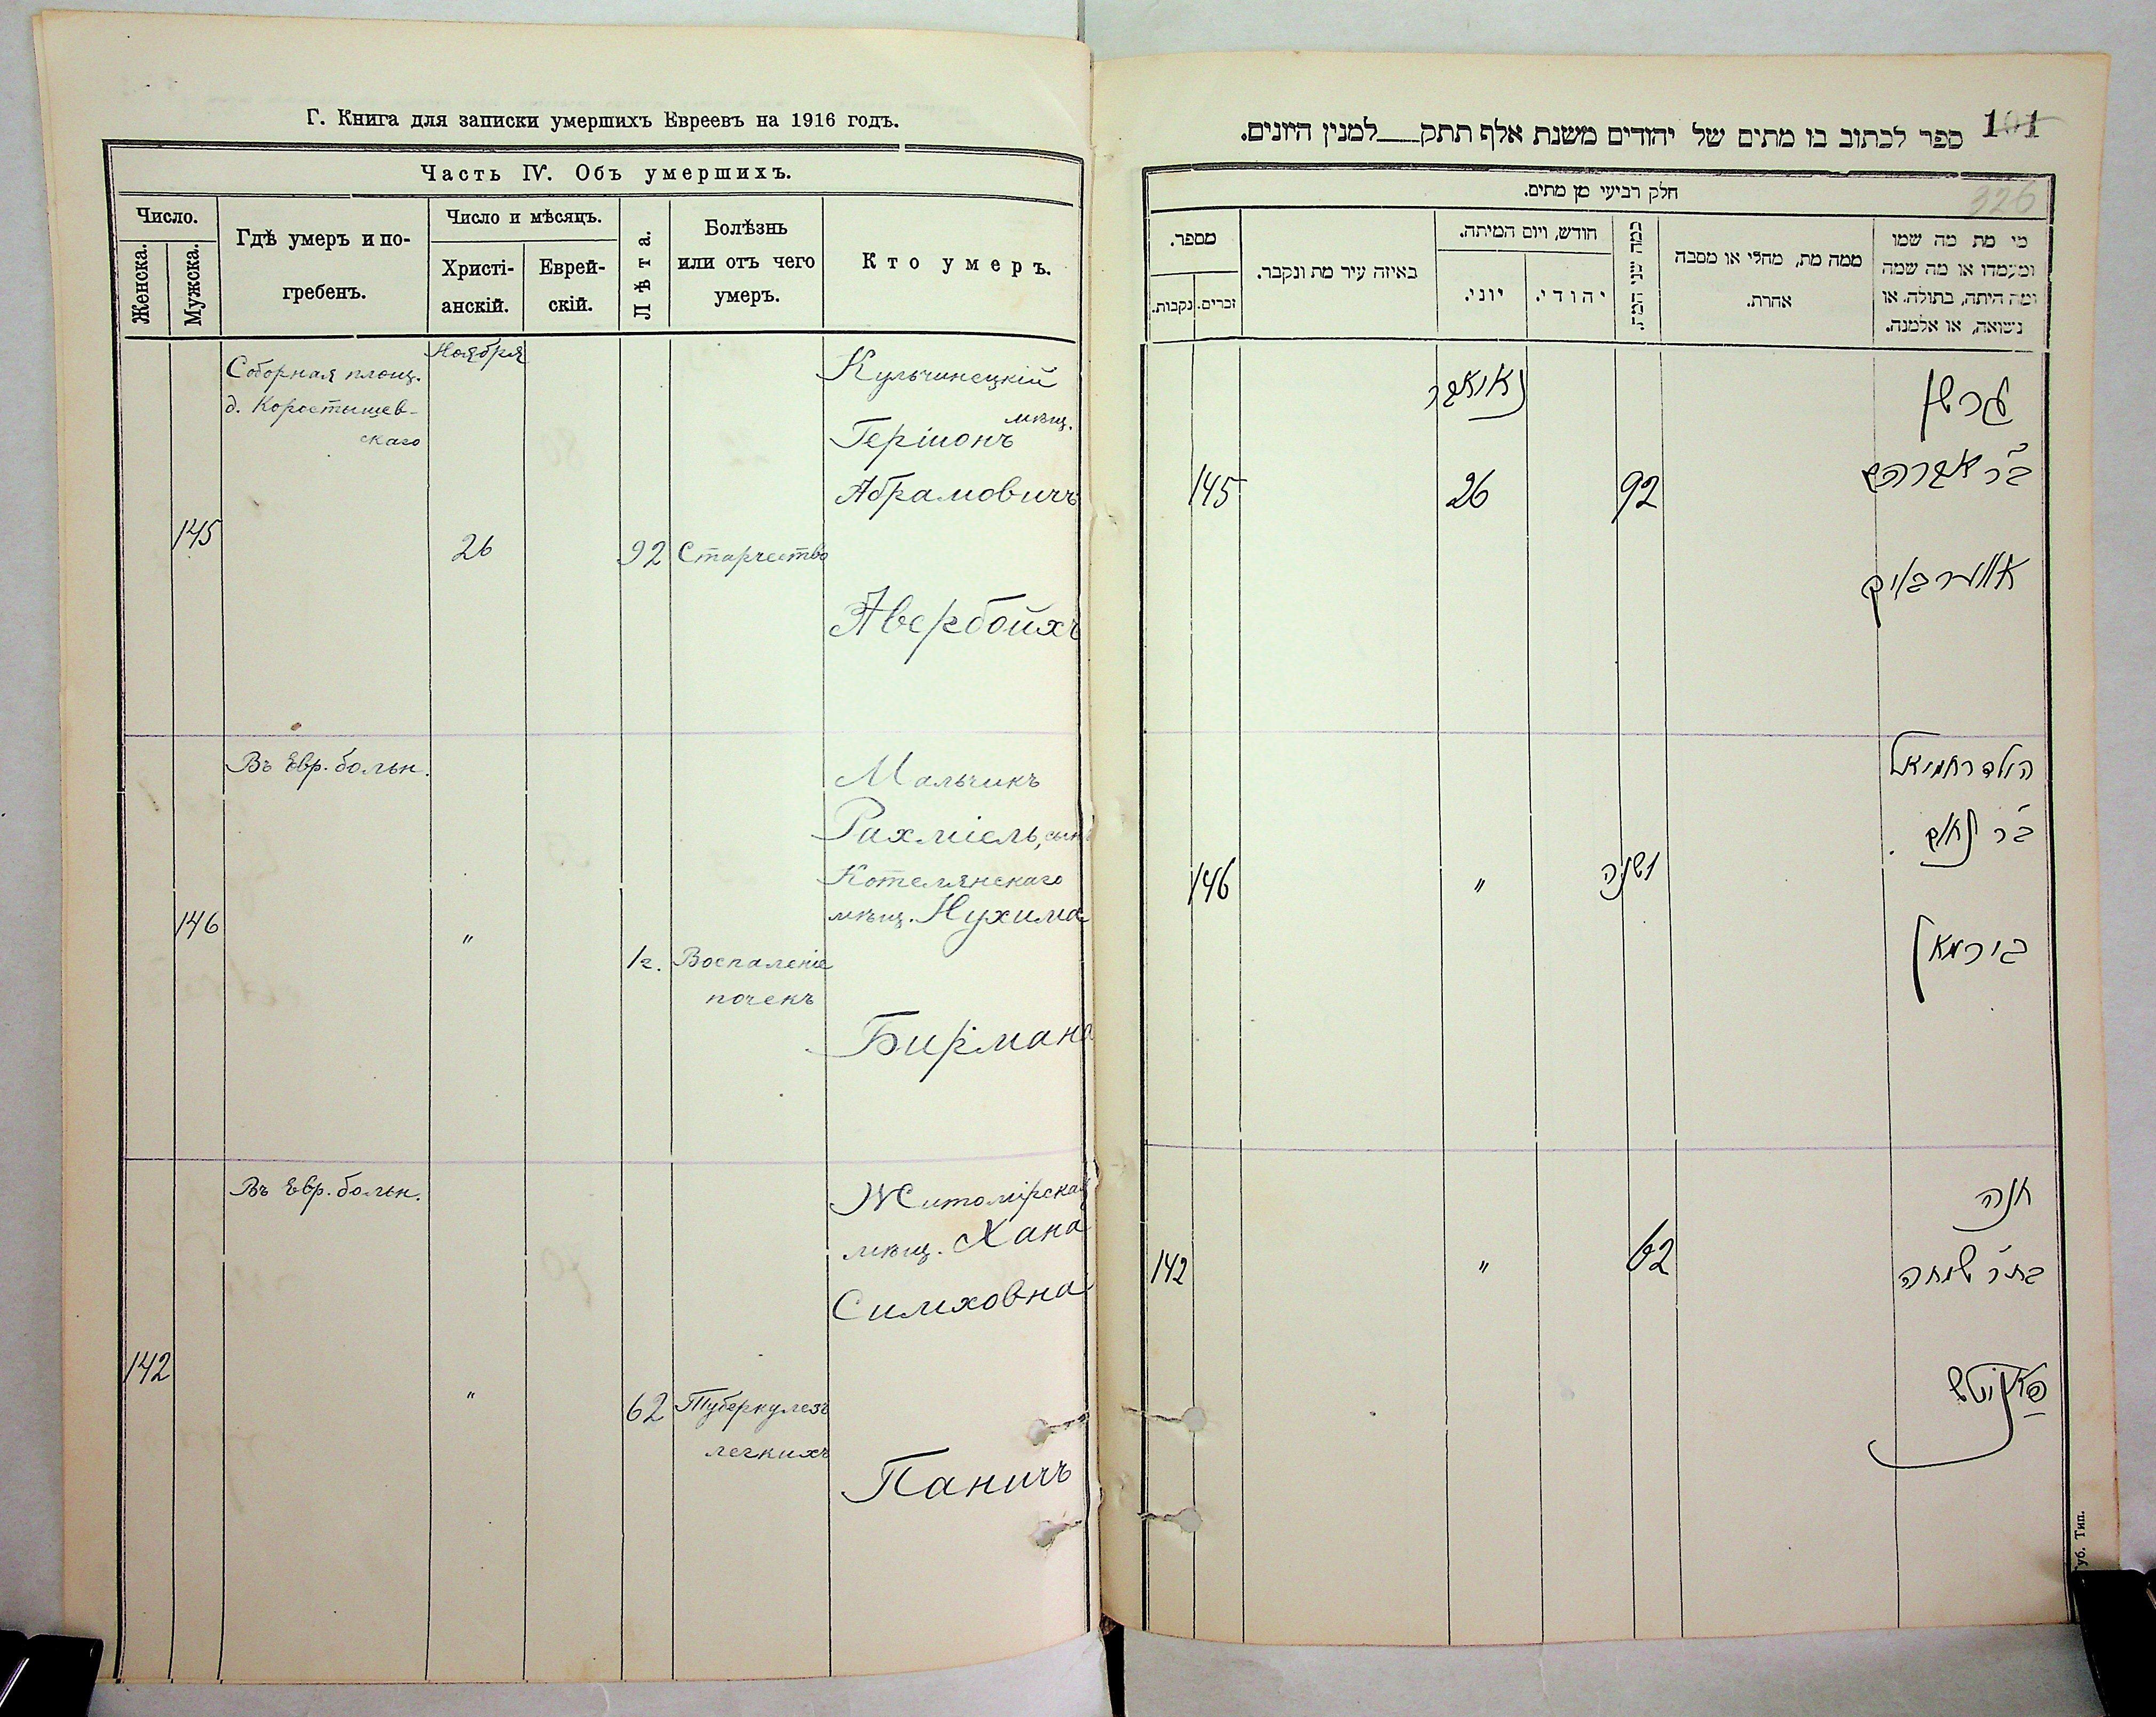 Г. Книга для записки умершихъ Евреевъ на 1916 годъ.
Часть IV. Объ умершихъ.
Число.
Женска.
Мужска.
Гдѣ умеръ и по-
гребенъ.
Число и мѣсяцъ.
Христі-
анскій.
Еврей-
скій.
Лѣта.
Болѣзнь
или отъ чего
умеръ.
Кто умеръ.
145
Соборная площ.
д. Коростышев-
скаго
Ноября
26
92
Старчество
Кульчинецкій
мѣщ.
Гершонъ
Абрамовичъ
Авербойхъ
146
Въ Евр. больн.
"
1 г.
Воспаленіе
почекъ
Мальчикъ
Рахміель, сынъ
Котелянскаго
мѣщ. Нухима
Бирмана
142
Въ Евр. больн.
"
62
Туберкулезъ
легкихъ
Житомірская
мѣщ. Хана
Симховна
Паничъ
101
ספר לכתוב בו מתים של יהודים משנת אלף תתק___למנין היונים.
326
חלק רביעי מן מתים.
מי מת מה שמו
ומעמדו או מה שמה
ומה היתה, בתולה, או
נשואה, או אלמנה.
ממה מת, מחלי או מסבה
אחרת.
כמה שני המת.
חודש, ויום המיתה.
יהודי.
יוני.
באיזה עיר מת ונקבר.
מספר.
זכרים.
נקבות.
גרשון
ב"ר אברהם
אווערבויך
92
נאיאבר
26
145
הילד רחמיאל
ב"ר נחום
בירמאן
1 שנה
"
146
חנה
בת ר' שמחה
פאניטש
62
"
142
уб. Тип.